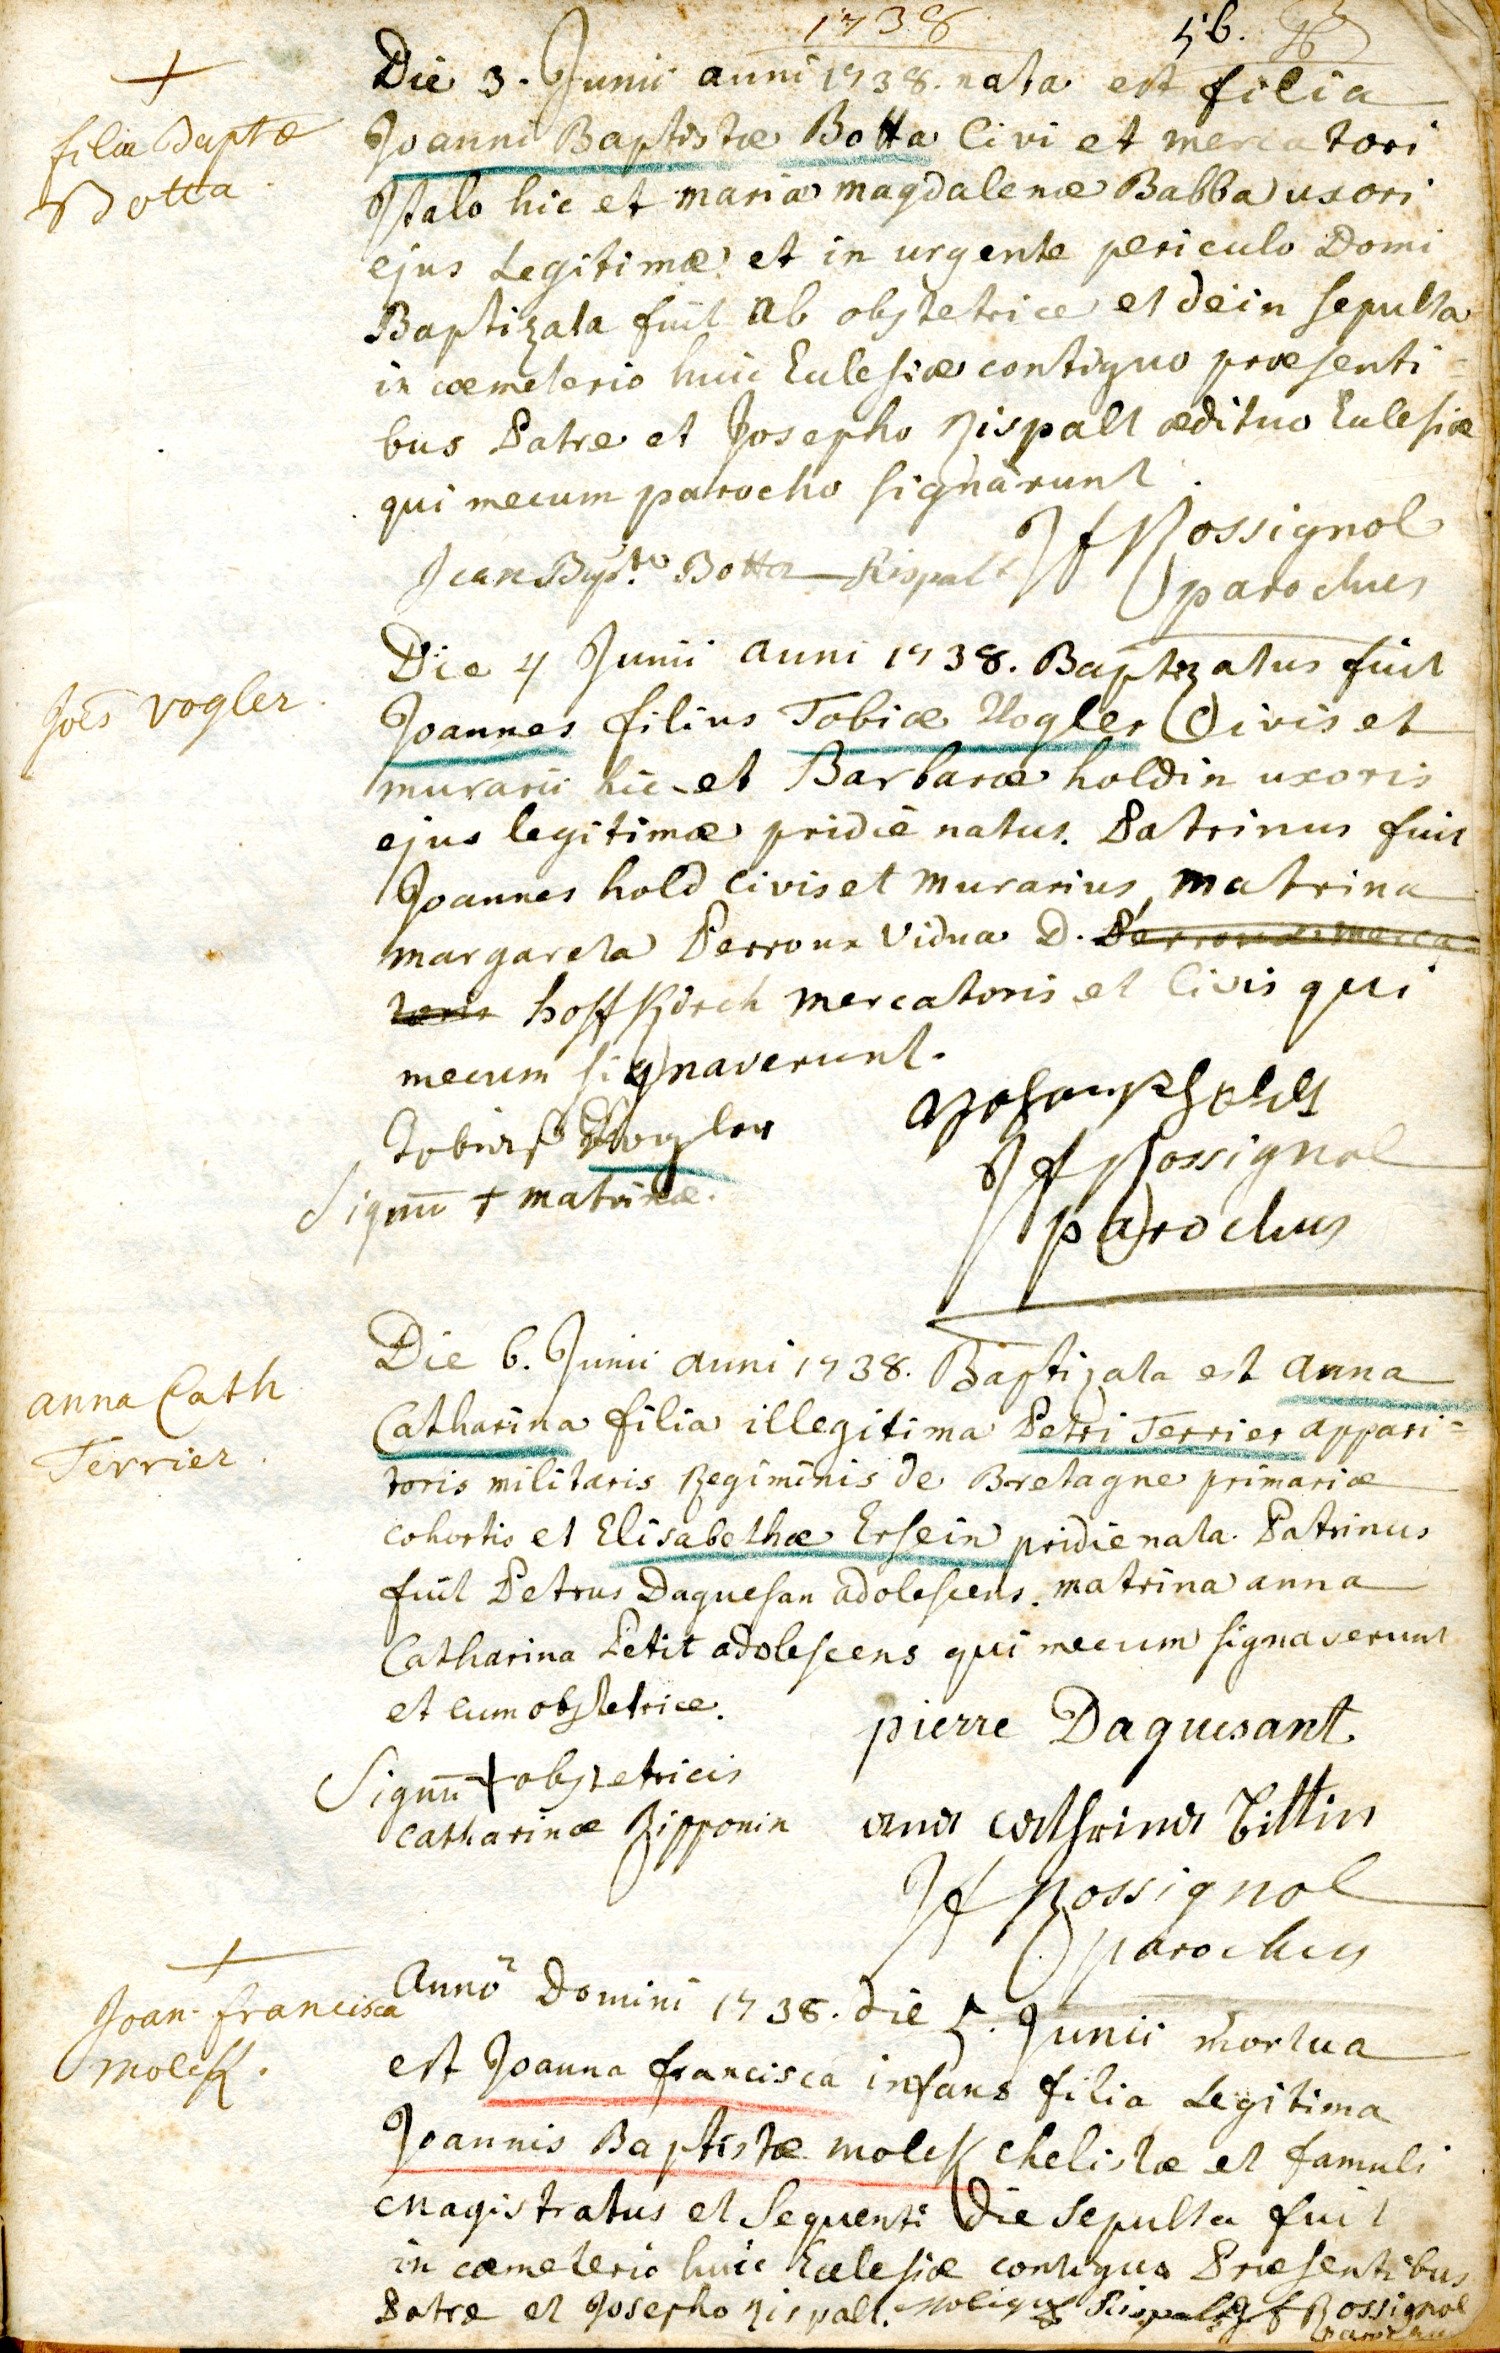 1738
56.
Die 3. Junii anni 1738. nata est filia
filia Baptæ
Botta
Joanni Baptistæ Botta Civi et mercatori
Italo hic et mariæ magdalenæ Babba uxori
ejus Legitimæ et in urgente periculo Domi
Baptizata fuit ab obstetrice et dein sepulta
in cœmeterio huic Eclesiæ contiguo præsenti=
bus Patre et Josepho Rispalt ædituo Eclesiæ
qui mecum parocho signarunt.
Jean Bapt. Botta Rispalt JfRossignol
parochus
Die 4 Junii anni 1738. Baptizatus fuit
Joes Vogler
Joannes filius Tobiæ Vogler Civis et
murarii hic et Barbaræ holdin uxoris
ejus legitimæ pridie natus. Patrinus fuit
Joannes hold Civis et murarius, matrina
margareta Perroux Vidua D. Perroux merca=
toris hoffkirch mercatoris et Civis qui
mecum signaverunt.
Tobias Vogler
Johannes holdt
Signu + matrinæ.
Jf Rossignol
parochus
Die 6. Junii anni 1738. Baptizata est anna
anna Cath
Terrier.
Catharina filia illegitima Petri Terrier appari=
toris militaris Regiminis de Bretagne primariæ
cohortis et Elisabethæ Ersein pridie nata. Patrinus
fuit Petrus Daguesan adolescens. matrina anna
Catharina Petit adolescens qui mecum signaverunt
et cum obstetrice.
pierre Daguesant.
Signu + obstetricis
Catharinæ Zipponin
ana cathrina Bittin
Jf Rossignol
parochus
Joan. francisca
molck.
anno Domini 1738. die 5. Junii mortua
est Joanna francisca infans filia Legitima
Joannis Baptistæ molck chelistæ et famuli
magistratus et sequenti die sepulta fuit
in cœmeterio huic Eclesiæ contiguo Præsentibus
Patre et Josepho Rispalt. Rispalt Jf Rossignol
parochus